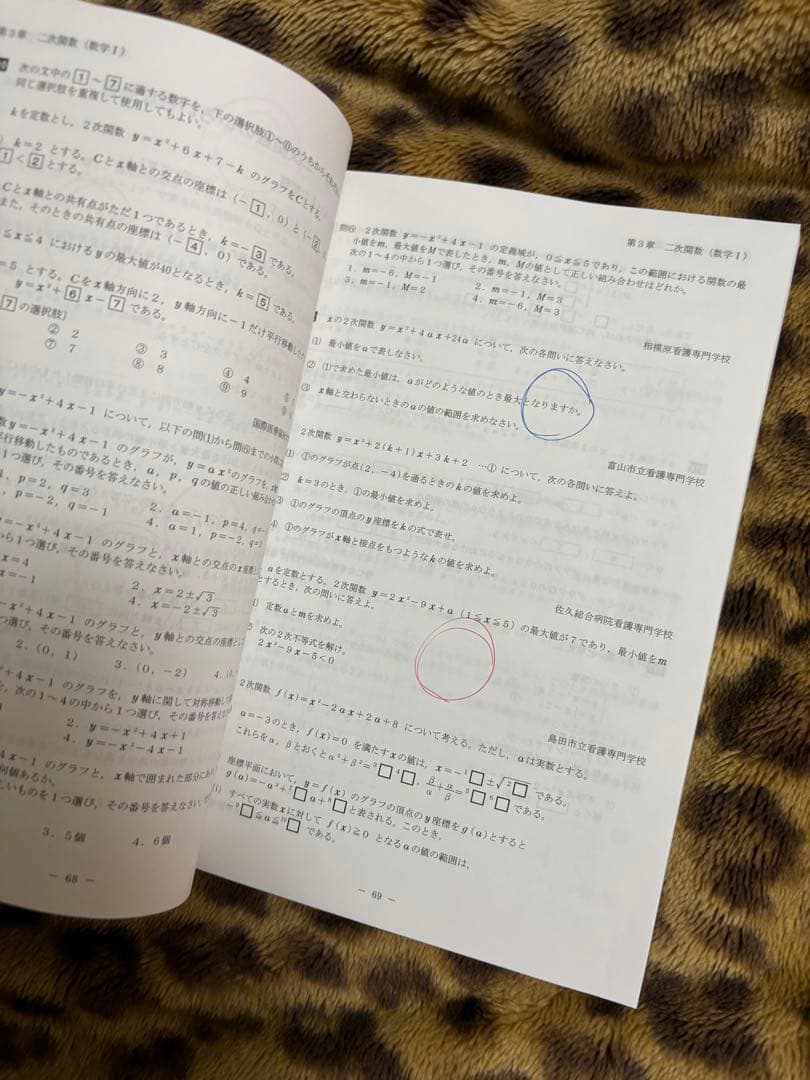 第3章 二次関数（数学Ⅰ）
次の文中の 1 ～ 7 に適する数字を、下の選択肢①～⓪のうちから
同じ選択肢を重複して使用してもよい。
kを定数とし、2次関数 y＝x²＋6x＋7－k のグラフをCとする。
k＝2 とする。Cとx軸との交点の座標は（－ 1 ，0）と（－ 2
1 ＜ 2 とする。
Cとx軸との共有点がただ1つであるとき、k＝－ 3 である。
また、そのときの共有点の座標は（－ 4 ，0）である。
≦x≦4 におけるyの最大値が40となるとき、k＝ 5 である。
＝5 とする。Cをx軸方向に2，y軸方向に－1だけ平行移動した
y＝x²＋ 6 x－ 7 である。
7 の選択肢〕
② 2 ③ 3 ④ 4
⑦ 7 ⑧ 8 ⑨ 9
国際医療福祉
y＝－x²＋4x－1 について、以下の問(1)から問⑥までの
数y＝－x²＋4x－1 のグラフが、y＝ax²のグラフを、
平行移動したものであるとき、a，p，qの値の正しい組み合
1つ選び、その番号を答えなさい。
1，p＝2，q＝3 2．a＝－1，p＝4，q＝
p＝－2，q＝－1 4．a＝1，p＝－2，q＝
＝－x²＋4x－1 のグラフと、x軸との交点のx座標
から1つ選び、その番号を答えなさい。
x＝4 2．x＝2±√3
x＝－1 4．x＝－2±√3
－x²＋4x－1 のグラフと、y軸との交点の座標として
なさい。
2．（0，1） 3．（0，－2） 4．
4x－1 のグラフを、y軸に関して対称移動して
を、次の1～4の中から1つ選び、その番号を答えなさい。
2．y＝－x²＋4x＋1
4．y＝－x²－4x－1
4x－1 のグラフと、x軸で囲まれた部分に
何個あるか。
しいものを1つ選び、その番号を答えなさい。
3．5個 4．6個
－ 68 －
第3章 二次関数（数学Ⅰ）
問⑥ 2次関数 y＝－x²＋4x－1 の定義域が、0≦x≦5であり、この範囲における関数の最
小値をm，最大値をMで表したとき、m，Mの値として正しい組み合わせはどれか。
次の1～4の中から1つ選び、その番号を答えなさい。
1．m＝－6，M＝－1 2．m＝－1，M＝3
3．m＝－1，M＝2 4．m＝－6，M＝3
相模原看護専門学校
xの2次関数 y＝x²＋4ax＋24a について、次の各問いに答えなさい。
(1) 最小値をaで表しなさい。
② ①で求めた最小値は、aがどのような値のとき最大となりますか。
③ x軸と交わらないときのaの値の範囲を求めなさい。
富山市立看護専門学校
2次関数 y＝x²＋2(k＋1)x＋3k＋2 …① について、次の各問いに答えよ。
(1) ①のグラフが点(2，－4)を通るときのkの値を求めよ。
② k＝3のとき、①の最小値を求めよ。
③ ①のグラフの頂点のy座標をkの式で表せ。
4) ①のグラフがx軸と接点をもつようなkの値を求めよ。
佐久総合病院看護専門学校
aを定数とする。2次関数 y＝2x²－9x＋a（1≦x≦5）の最大値が7であり、最小値をm
とするとき、次の問いに答えよ。
1) 定数aとmを求めよ。
2 次の2次不等式を解け。
2x²－9x－5＜0
島田市立看護専門学校
2次関数 f(x)＝x²－2ax＋2a＋8 について考える。ただし、aは実数とする。
a＝－3のとき、f(x)＝0 を満たすxの値は、x＝－¹□±√²□ である。
これらをα，βとおくとα²＋β²＝³□⁴□，β/α＋α/β＝⁵□⁶□ である。
座標平面において、y＝f(x) のグラフの頂点のy座標をg(a)とすると
g(a)＝－a²＋⁷□a＋⁸□と表される。このとき、
(i) すべての実数xに対して f(x)≧0 となるaの値の範囲は、
－⁹□≦a≦¹⁰□ である。
－ 69 －